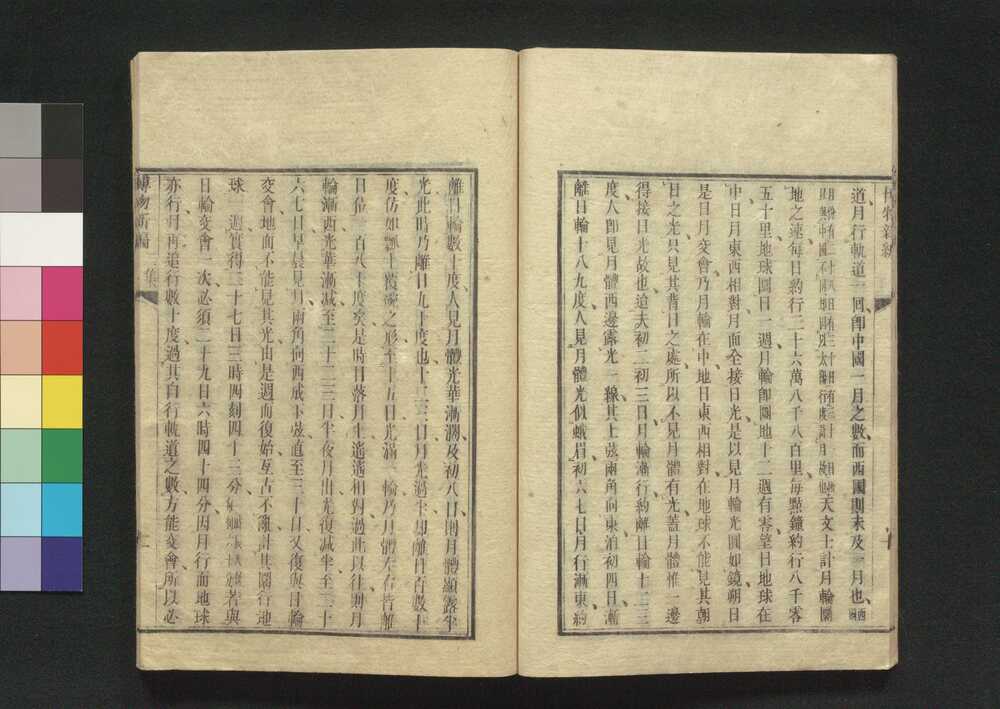 道月行軌道一回卽中國一月之數而西國則未及一月也西國
天文士計月輪圜
地之速每日約行二十六萬八千八百里每點鐘約行八千零
五十里地球圜日一週月輪卽圜地十二週有零望日地球在
中日月東西相對月面全接日光是以見月輪光圓如鏡朔日
是日月交會乃月輪在中地日東西相對在地球不能見其朝
日之光只見其背日之處所以不見月體有光蓋月體惟一邊
得接日光故也迨夫初二初三日月輪漸行約離日輪十二三
度人卽見月體西邊露光一線其上弦兩角向東洎初四日漸
離日輪十八九度人見月體光似蛾眉初六七日月行漸東約
離日輪數十度人見月體光華漸濶及初八日則月體顯露半
光此時乃離日九十度也十二三日月光過半却離日百數十
度仿如瓢上覆
之形至十五日光滿一輪乃月體左右皆離
日伯一百八十度矣是時日落月上遙遙相對過此以往則月
輪漸西光華漸减至二十二三日半夜月出光復减半至三十
六七日早晨見月兩角向西成下弦直至三十日又復與日輪
交會地面不能見其光由是週而復始互古不亂計其圜行地
球一週實得二十七日三時四刻四十三分
若與
日輪交會一次必須二十九日六時四十四分因月行而地球
亦行月再追行數十度過其自行軌道之數方能交會所以必
博物新編
二集